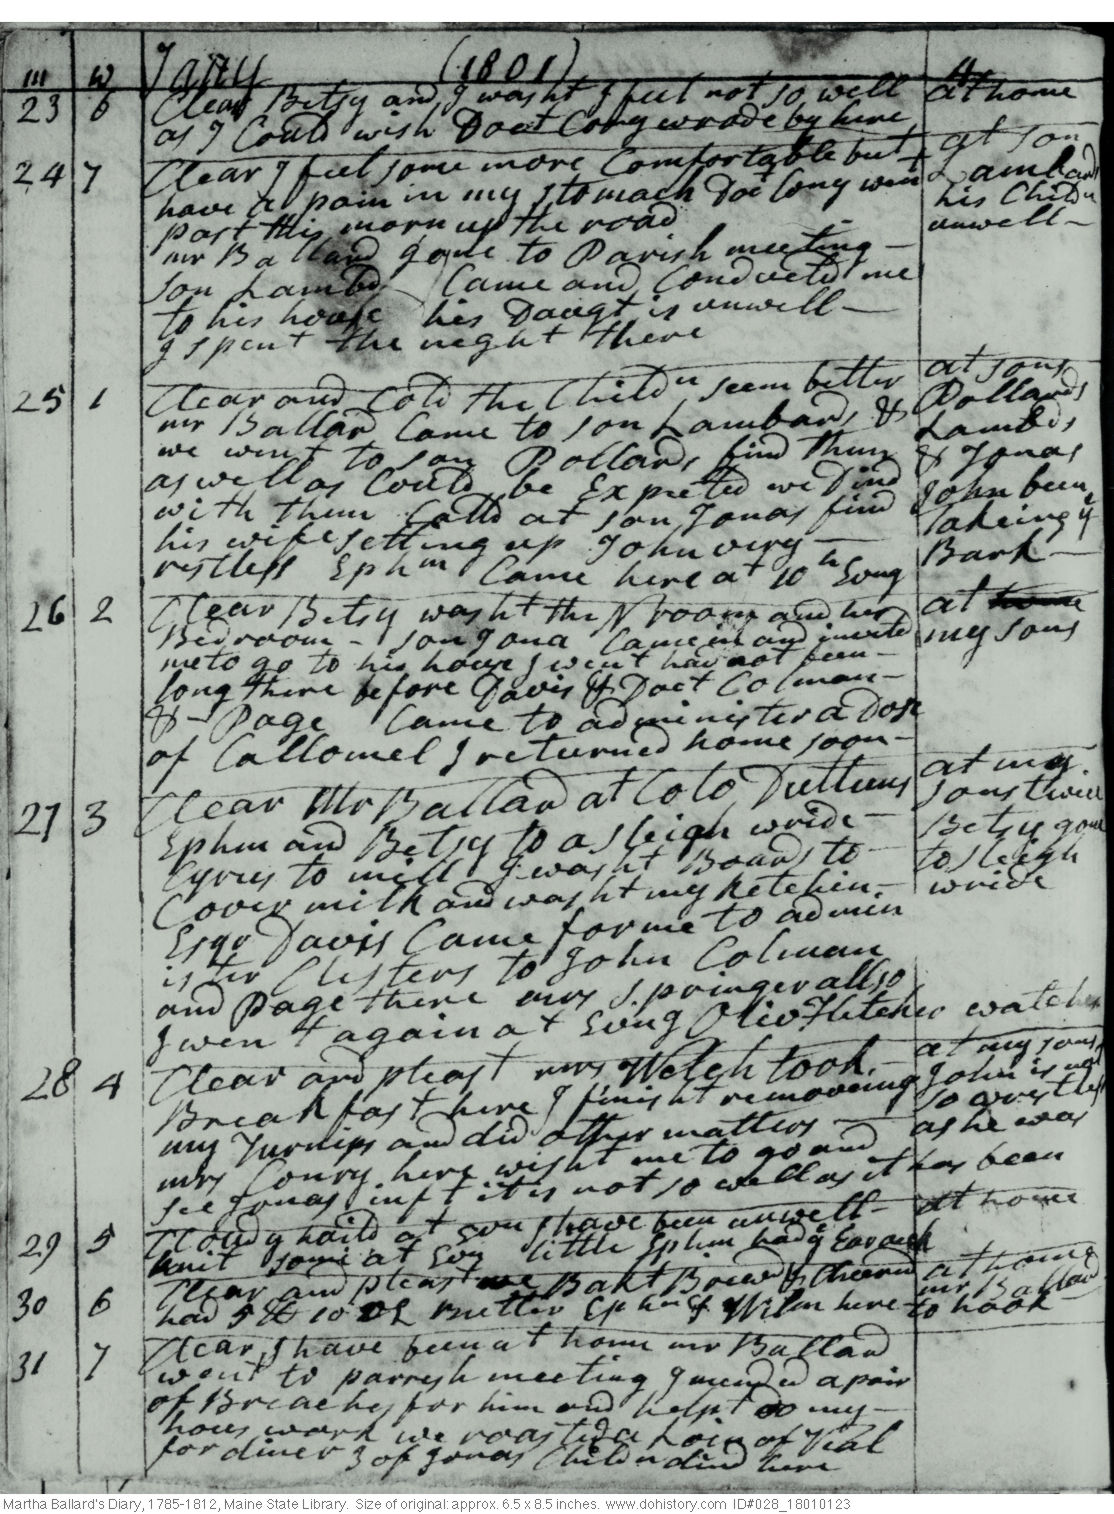 m w Jany (1801) H
23 6 Clear Betsy and I washt I feel not so well at home
as I Could wish Doct Cony wrode by here
24 7 Clear I feel some more Comfortable but at son
have a pain in my stomach Doct Cony went Lambards
past this morn up the road his Childn
mr Ballard gone to Parish meeting - unwell -
son Lambd Came and Conducted me
to his house his Daugt is unwell -
I spent the night there
25 1 Clear and Cold the Childn seem better at sons
mr Ballard Came to son Lambards & Pollards
we went to son Pollards find them Lambds
as well as Could be Expected we Dind & Jonas
with them Calld at son Jonas find John been
his wife setting up John very - takeing ye
restless Ephm Came here at 10 h Evng Bark -
26 2 Clear Betsy washt the N room and her at home
Bedroom - son Jona Came in and invited my sons
me to go to his house I went had not been -
long there before Davis & Doct Colman -
& - Page Came to administer a Dose
of Callomel I returned home soon -
27 3 Clear Mr Ballard at Colo Duttuns at my
Ephm and Betsy to a sleigh wride - sons twice
Cyrus to mill I washt Boards to Betsy gone
Cover milk and washt my ketchin - to sleigh
Esqr Davis Came for me to admin wride
ister Clisters to John Colman
and Page there mrs Springer allso
I went again at Evng Olive Fletcher watches
28 4 Clear and pleast mrs Welch took - at my sons
Breakfast here I finisht removeing John is not
my Turnips and did other matters - so restless
mrs Conry here wisht me to go and as he was
see Jonas inft it is not so well as it has been
29 5 Cloudy haild at Evn I have been unwell - at home
knit some at Evng little Ephm had ye Earach
30 6 Clear and pleast we Bakt Brewd & Cheernd at home
had 5 lb 10 oz Butter Ephm & Wilm here mr Ballard
to hook
31 7 Clear I have been at home mr Ballard
went to parrish meeting I mended a pair
of Breaches for him and helpt do my -
hous work we roasted a Loin of Veal
for diner 3 of Jonas Childn dind here
Martha Ballard's Diary, 1785-1812, Maine State Library. Size of original: approx. 6.5 x 8.5 inches. www.dohistory.com ID#028_18010123